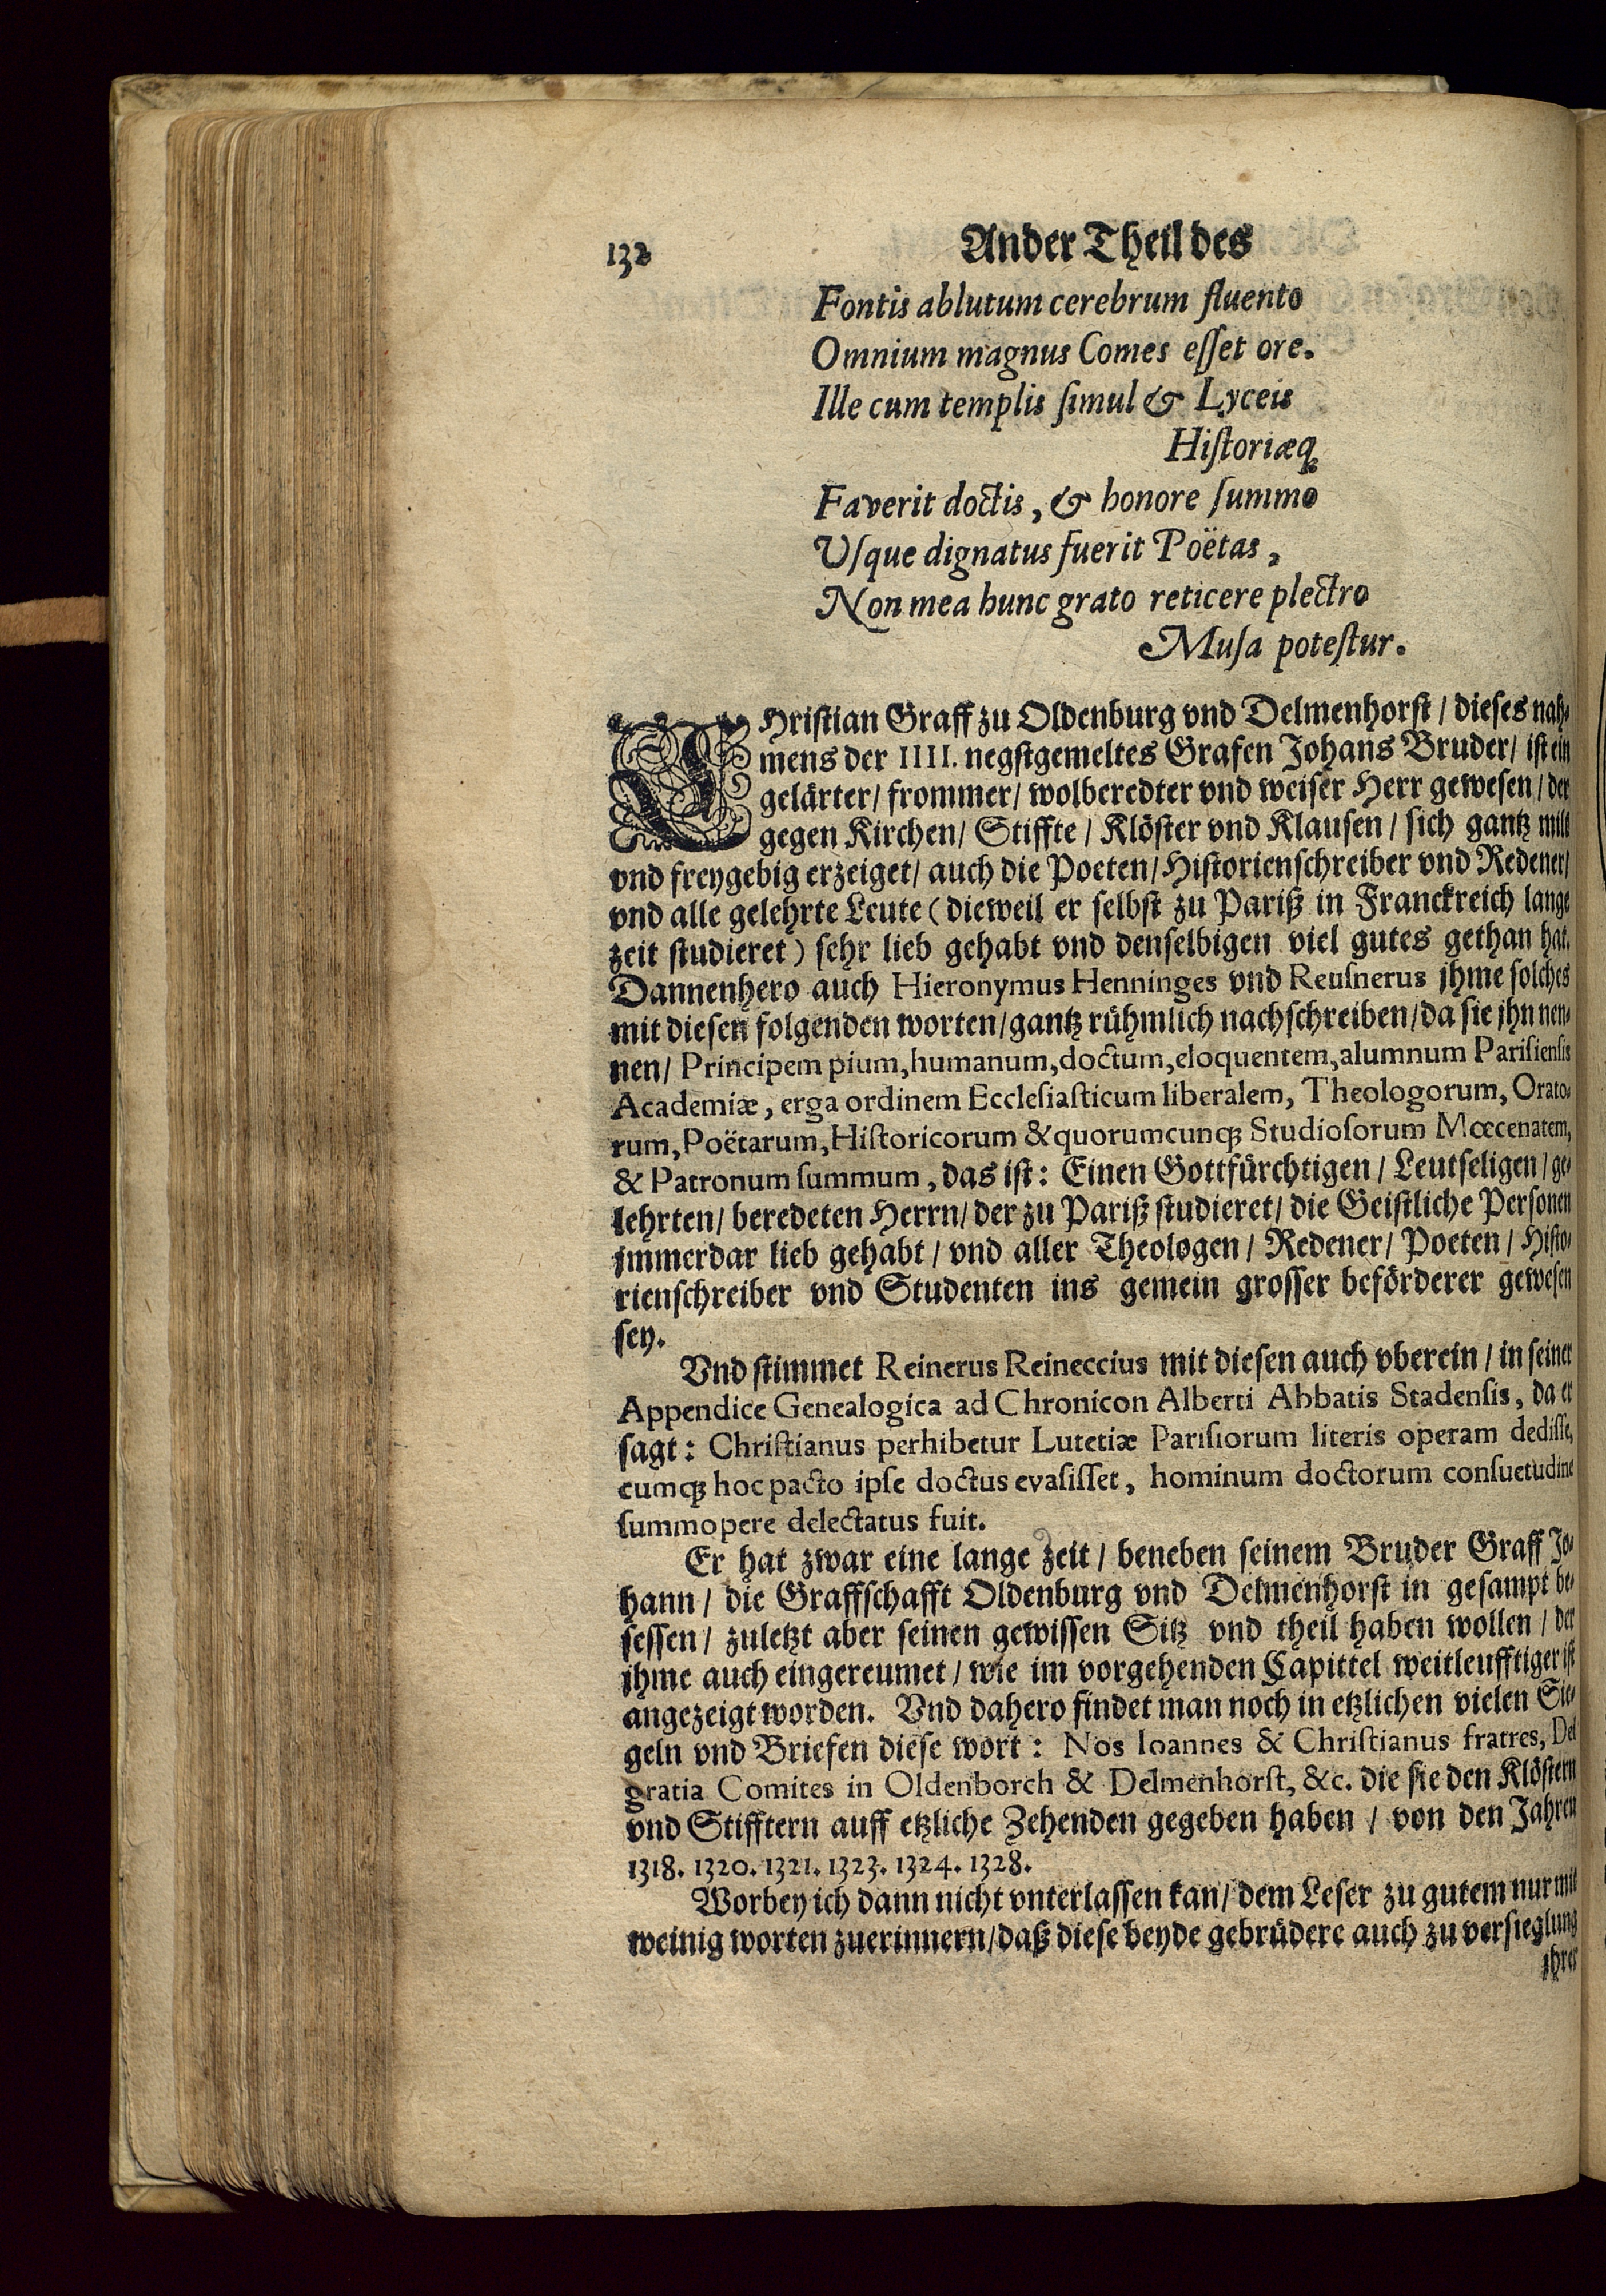 132 Ander Theil des
Fontis ablutum cerebrum fluento
Omnium magnus Comes eſſet ore.
Ille cum templis ſimul & Lyceis
Hiſtoriæq́
Faverit doctis, & honore ſummo
Uſque dignatus fuerit Poëtas,
Non mea hunc grato reticere plectro
Muſa poteſtur.
CHriſtian Graff zu Oldenburg vnd Delmenhorſt / dieſes nah-
mens der IIII. negſtgemeltes Grafen Johans Bruder / iſt ein
gelärter / frommer / wolberedter vnd weiſer Herr geweſen / der
gegen Kirchen / Stiffte / Klöſter vnd Klauſen / ſich gantz mild
vnd freygebig erzeiget / auch die Poeten / Hiſtorienſchreiber vnd Redener /
vnd alle gelehrte Leute (dieweil er ſelbſt zu Pariß in Franckreich lange
zeit ſtudieret) ſehr lieb gehabt vnd denſelbigen viel gutes gethan hat.
Dannenhero auch Hieronymus Henninges vnd Reuſnerus jhme ſolches
mit dieſen folgenden worten / gantz rühmlich nachſchreiben / da ſie jhn nen-
nen / Principem pium, humanum, doctum, eloquentem, alumnum Pariſienſis
Academiæ, erga ordinem Eccleſiaſticum liberalem, Theologorum, Orato-
rum, Poëtarum, Hiſtoricorum & quorumcunq; Studioſorum Mœcenatem,
& Patronum ſummum, das iſt: Einen Gottfürchtigen / Leutſeligen / ge-
lehrten / beredeten Herrn / der zu Pariß ſtudieret / die Geiſtliche Perſonen
jmmerdar lieb gehabt / vnd aller Theologen / Redener / Poeten / Hiſto-
rienſchreiber vnd Studenten ins gemein groſſer beförderer geweſen
ſey.
Vnd ſtimmet Reinerus Reineccius mit dieſen auch vberein / in ſeiner
Appendice Genealogica ad Chronicon Alberti Abbatis Stadenſis, da er
ſagt: Chriſtianus perhibetur Lutetiæ Pariſiorum literis operam dediſſe,
cumq; hoc pacto ipſe doctus evaſiſſet, hominum doctorum conſuetudine
ſummopere delectatus fuit.
Er hat zwar eine lange zeit / beneben ſeinem Bruder Graff Jo-
hann / die Graffſchafft Oldenburg vnd Delmenhorſt in geſampt be-
ſeſſen / zuletzt aber ſeinen gewiſſen Sitz vnd theil haben wollen / der
jhme auch eingereumet / wie im vorgehenden Capittel weitleufftiger iſt
angezeigt worden. Vnd dahero findet man noch in etzlichen vielen Sie-
geln vnd Briefen dieſe wort: Nos Ioannes & Chriſtianus fratres, Dei
gratia Comites in Oldenborch & Delmenhorſt, &c. die ſie den Klöſtern
vnd Stifftern auff etzliche Zehenden gegeben haben / von den Jahren
1318. 1320. 1321. 1323. 1324. 1328.
Worbey ich dann nicht vnterlaſſen kan / dem Leſer zu gutem nur mit
weinig worten zuerinnern / daß dieſe beyde gebrüdere auch zu verſieglung
jhrer